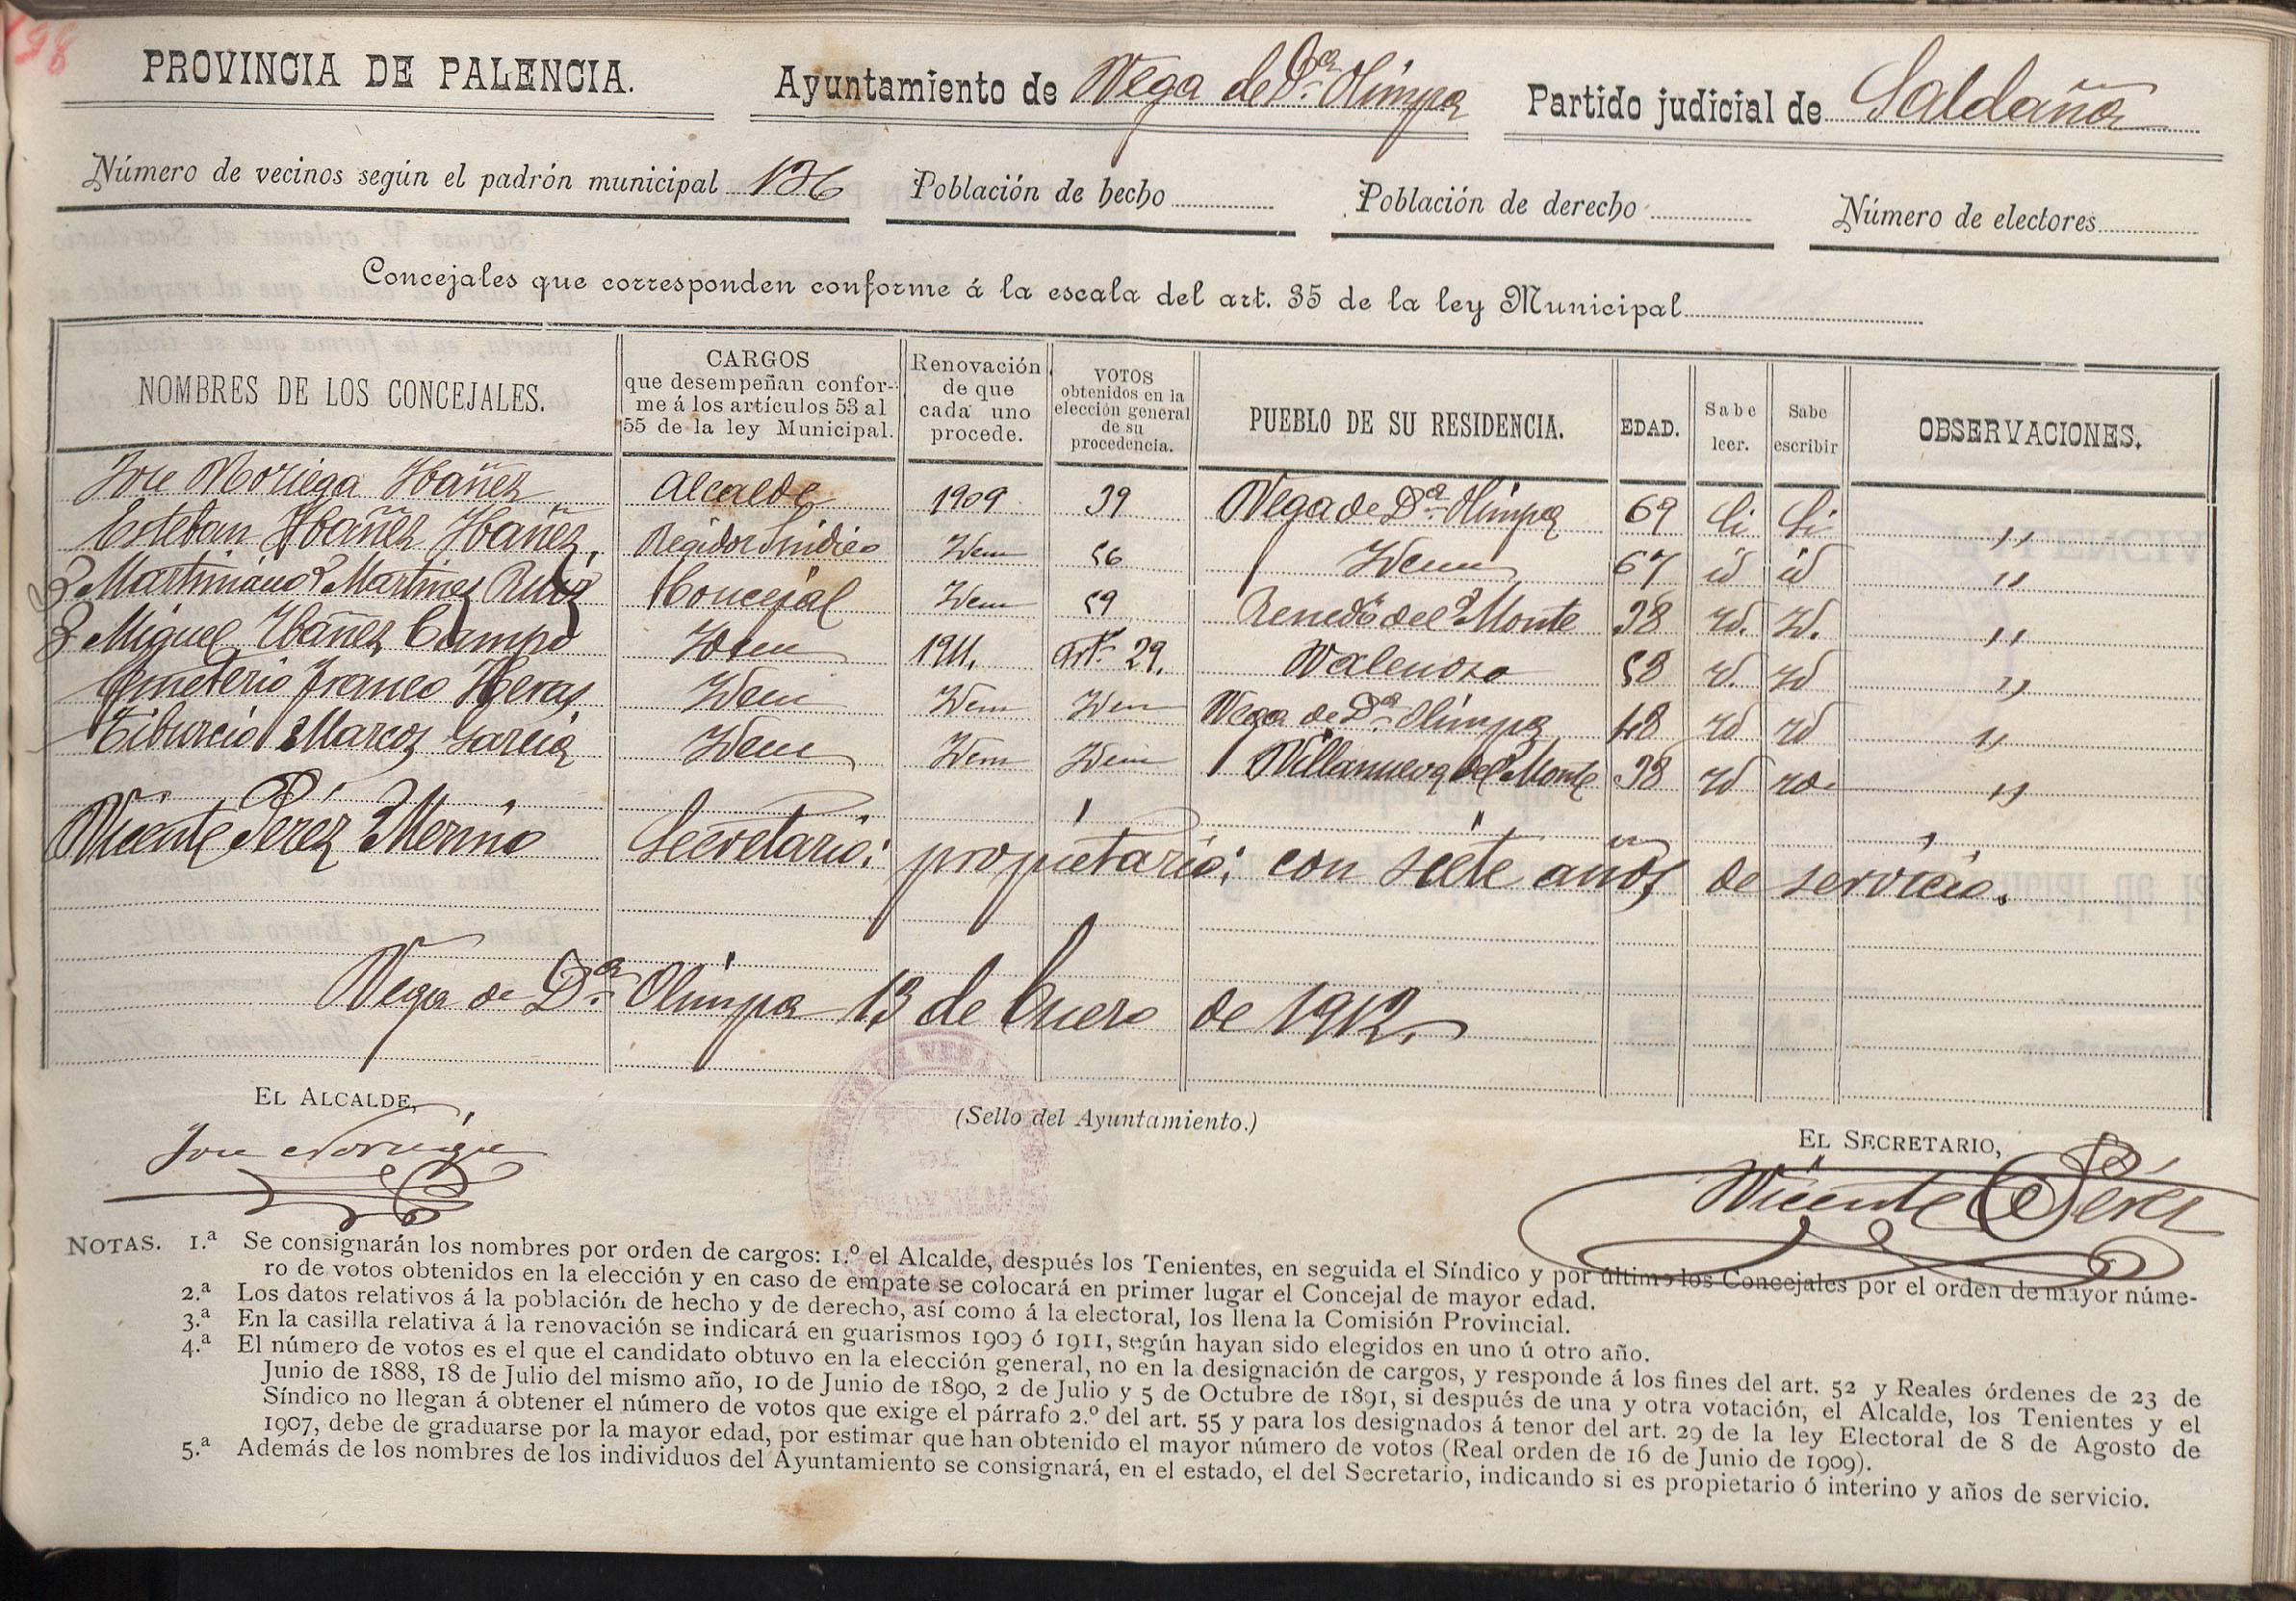 198
PROVINCIA DE PALENCIA. Ayuntamiento de Vega de D.ª Olimpa Partido judicial de Saldaña
Número de vecinos según el padrón municipal 136 Población de hecho Población de derecho Número de electores
Concejales que corresponden conforme á la escala del art. 35 de la ley Municipal
NOMBRES DE LOS CONCEJALES. CARGOS que desempeñan conforme á los artículos 53 al 55 de la ley Municipal. Renovación de que cada uno procede. VOTOS obtenidos en la elección general de su procedencia. PUEBLO DE SU RESIDENCIA. EDAD. Sabe leer. Sabe escribir OBSERVACIONES.
Jose Noriega Ibañez Alcalde 1909 39 Vega de D.ª Olimpa 69 Si Si ,,
Esteban Ibañez Ibañez. Regidor Sindico Idem 56 Idem 67 id id ,,
Martiniano Martinez Ruiz Concejal Idem 59 Renedo del Monte 38 id. id. ,,
Miguel Ibáñez Campo Idem 1911. Art. 29. Valenoso 58 id. id ,,
Emeterio Franco Heras Idem Idem Idem Vega de D.ª Olimpa 48 id id ,,
Tiburcio Marcos Garcia Idem Idem Idem Villanueva del Monte 38 id id ,,
Vicente Pérez Merino Secretario: propietario: con siete años de servicio.
Vega de D.ª Olimpa 13 de Enero de 1912.
EL ALCALDE,
Jose Noriega
(Sello del Ayuntamiento.)
EL SECRETARIO,
Vicente Pérez
NOTAS. 1.ª Se consignarán los nombres por orden de cargos: 1.º el Alcalde, después los Tenientes, en seguida el Síndico y por último los Concejales por el orden de mayor núme-
ro de votos obtenidos en la elección y en caso de empate se colocará en primer lugar el Concejal de mayor edad.
2.ª Los datos relativos á la población de hecho y de derecho, así como á la electoral, los llena la Comisión Provincial.
3.ª En la casilla relativa á la renovación se indicará en guarismos 1909 ó 1911, según hayan sido elegidos en uno ú otro año.
4.ª El número de votos es el que el candidato obtuvo en la elección general, no en la designación de cargos, y responde á los fines del art. 52 y Reales órdenes de 23 de
Junio de 1888, 18 de Julio del mismo año, 10 de Junio de 1890, 2 de Julio y 5 de Octubre de 1891, si después de una y otra votación, el Alcalde, los Tenientes y el
Síndico no llegan á obtener el número de votos que exige el párrafo 2.º del art. 55 y para los designados á tenor del art. 29 de la ley Electoral de 8 de Agosto de
1907, debe de graduarse por la mayor edad, por estimar que han obtenido el mayor número de votos (Real orden de 16 de Junio de 1909).
5.ª Además de los nombres de los individuos del Ayuntamiento se consignará, en el estado, el del Secretario, indicando si es propietario ó interino y años de servicio.